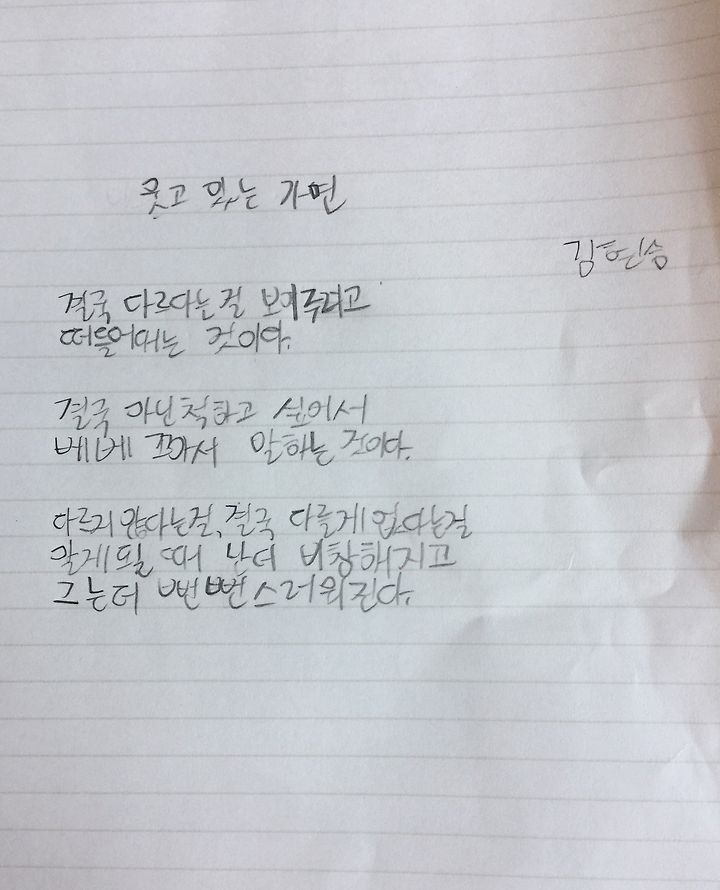 웃고 있는 가면
김현승
결국 다르다는걸 보여주려고
떠들어대는 것이다.
결국 아닌척하고 싶어서
베베 꼬아서 말하는것이다.
다르지않다는걸, 결국 다를게 없다는걸
알게될 때 난더 비참해지고
그는더 뻔뻔스러워진다.